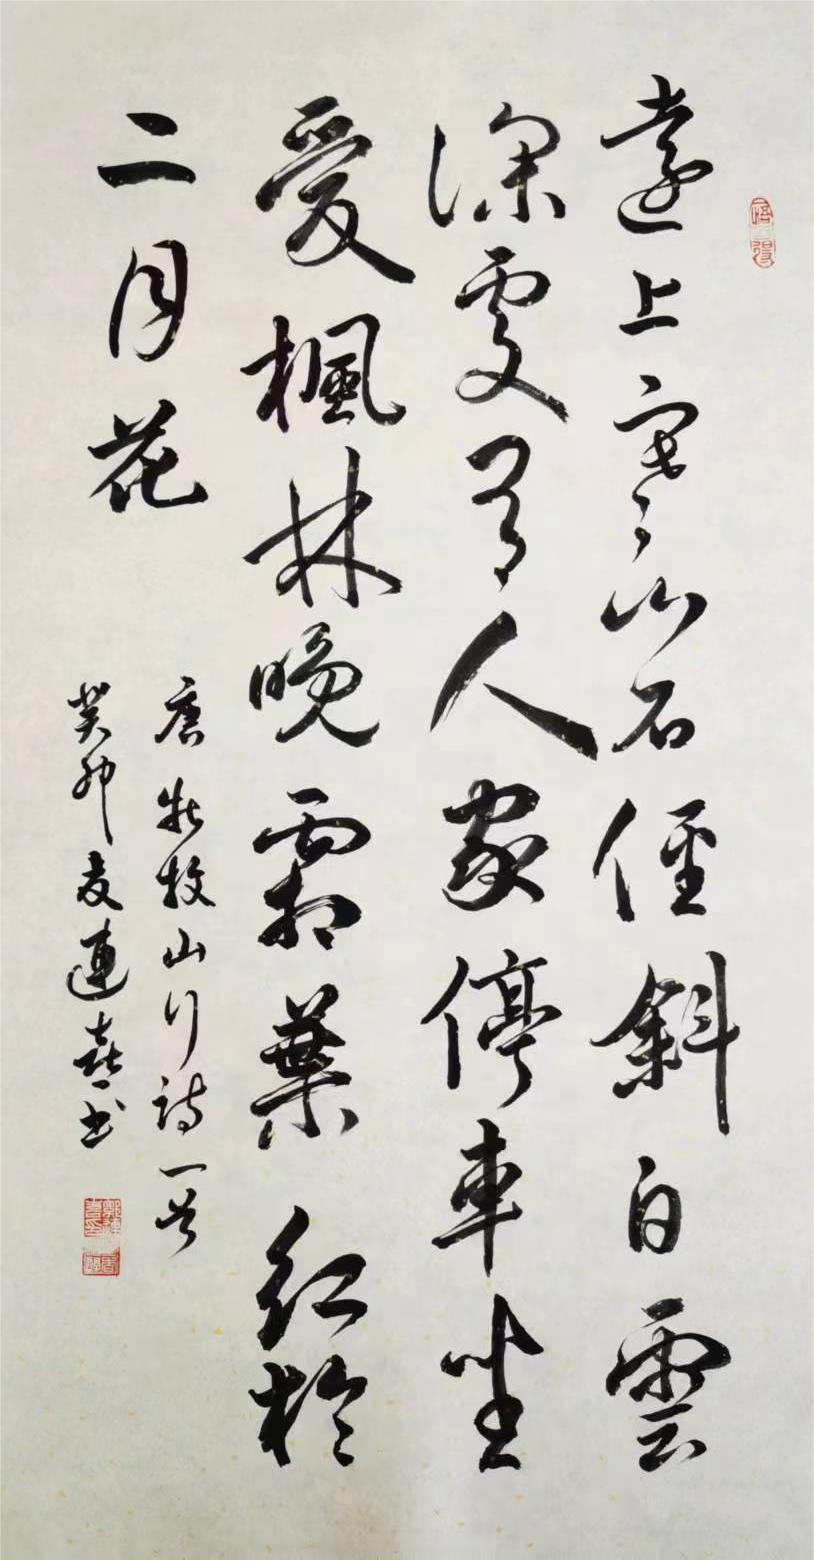 遠上寒山石徑斜白雲
深處有人家停車坐
愛楓林晚霜葉紅於
二月花
唐杜牧山行詩一首
癸卯夏連喜书